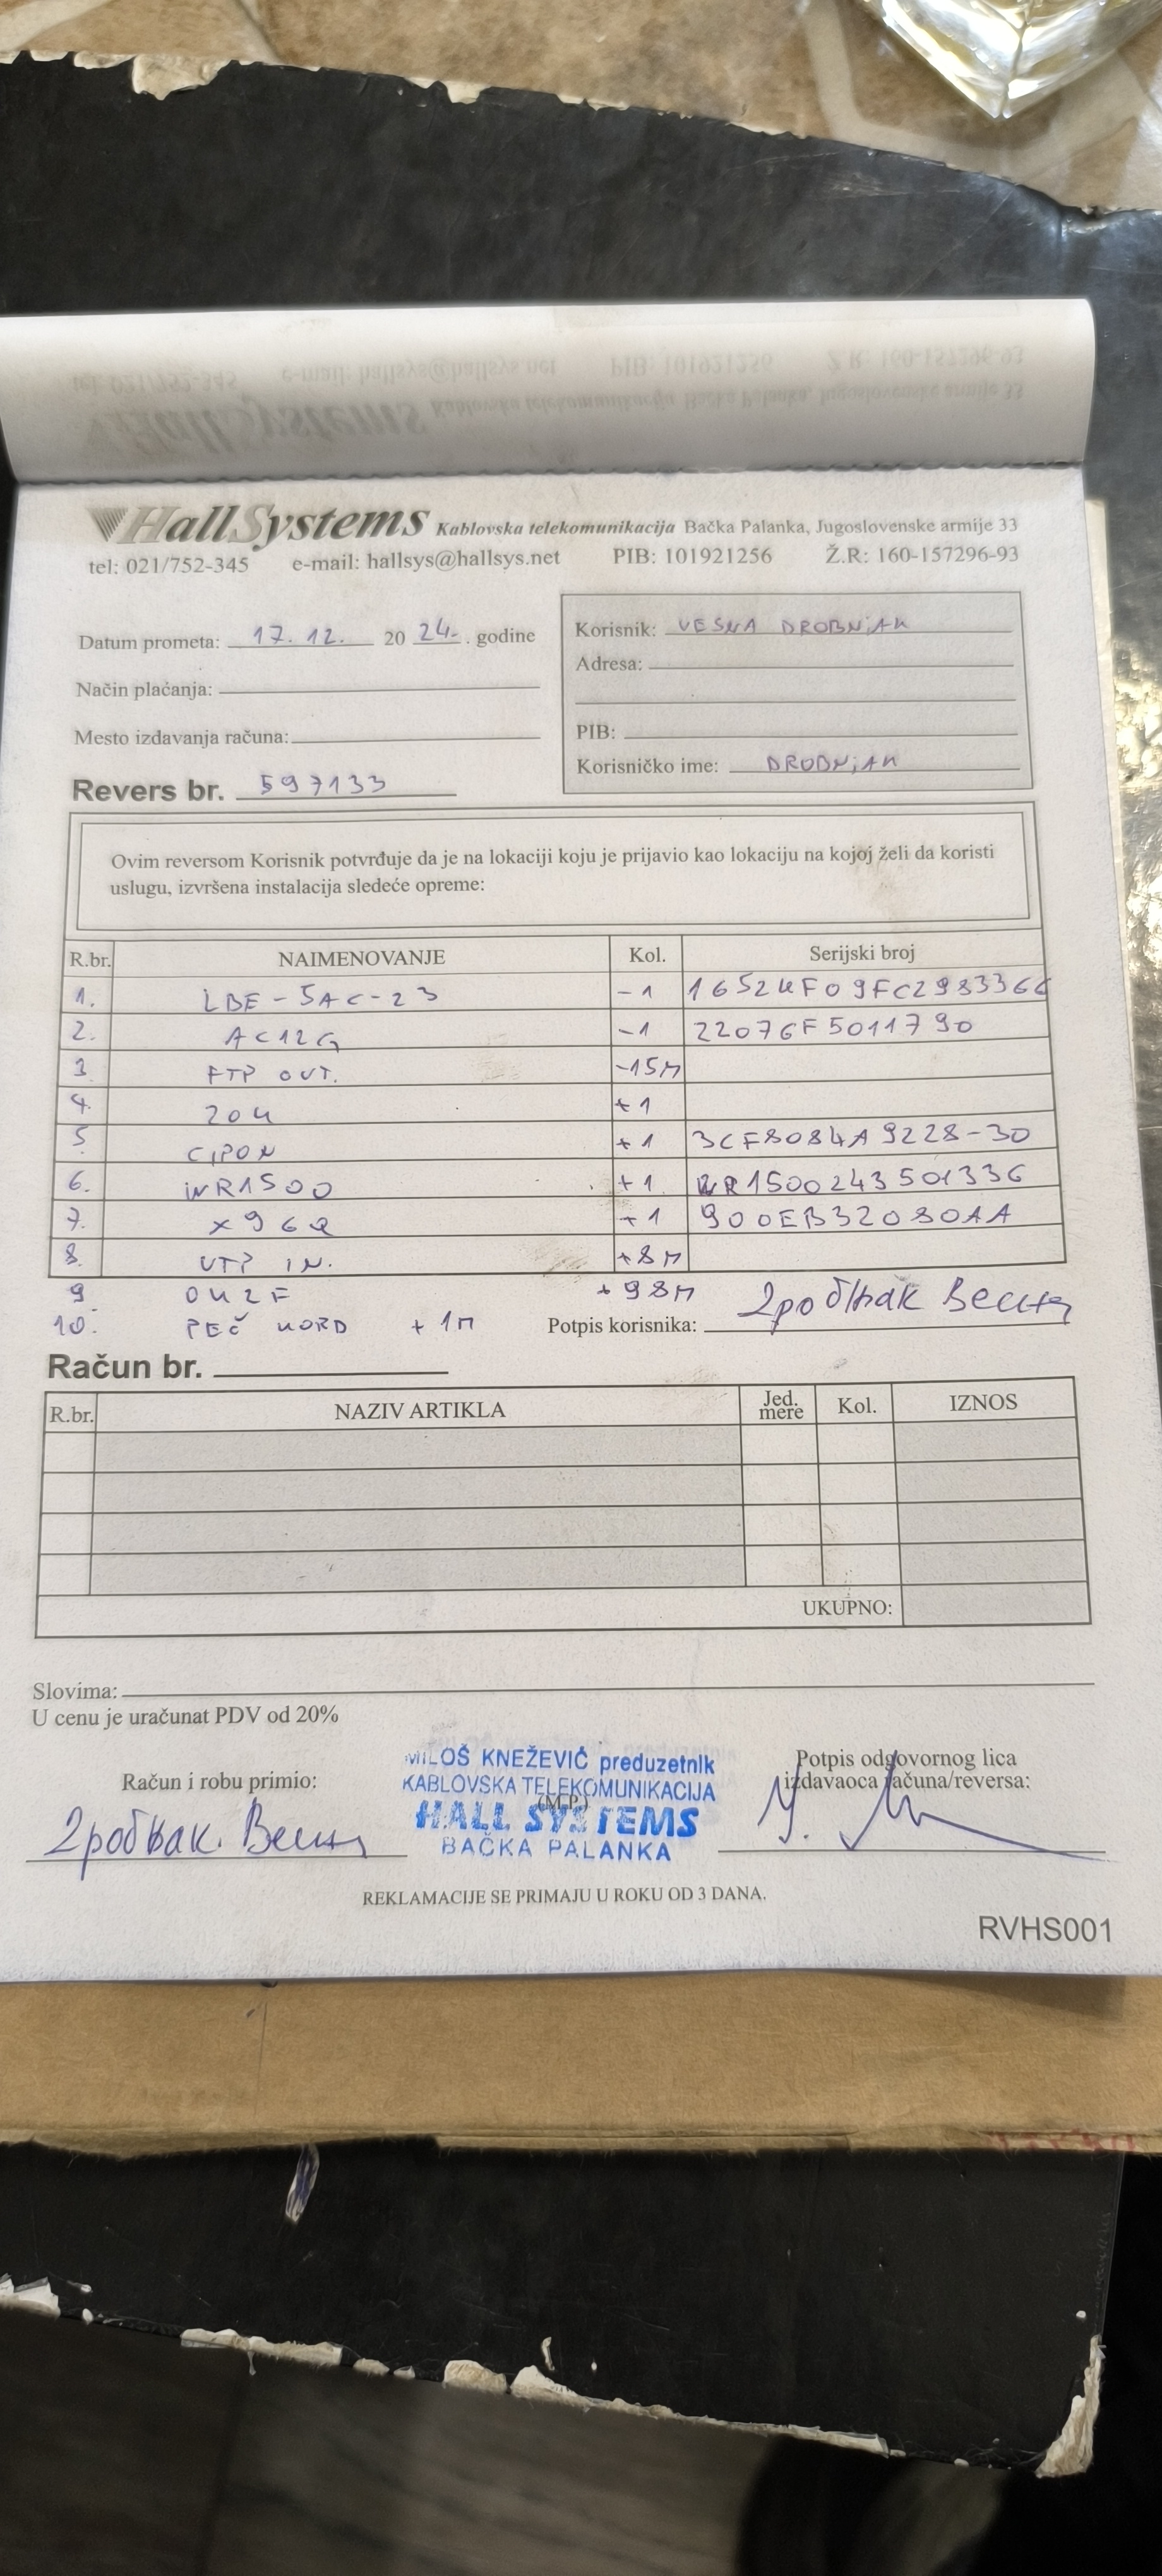 HallSystems Kablovska telekomunikacija Bačka Palanka, Jugoslovenske armije 33
tel: 021/752-345 e-mail: hallsys@hallsys.net PIB: 101921256 Ž.R: 160-157296-93
Datum prometa: 17. 12. 20 24. . godine
Način plaćanja:
Mesto izdavanja računa:
Revers br. 597133
Korisnik: VESNA DROBNjAK
Adresa:
PIB:
Korisničko ime: DROBNjAK
Ovim reversom Korisnik potvrđuje da je na lokaciji koju je prijavio kao lokaciju na kojoj želi da koristi
uslugu, izvršena instalacija sledeće opreme:
R.br. NAIMENOVANJE Kol. Serijski broj
1. LBE-5AC-23 -1
2. AC12G -1 22076F5011790
3. FTP OUT. -15M
4. +1
5 CIPON +1 3CF8084A9228-30
6. WR1500 +1 WR1500243501336
7. X96Q +1 900EB32080AA
8. UTP IN. +8M
9 OK2F +98M
10. PEČ KORD +1M Potpis korisnika: Дробњак Весна
Račun br.
R.br. NAZIV ARTIKLA Jed. mere Kol. IZNOS
UKUPNO:
Slovima:
U cenu je uračunat PDV od 20%
Račun i robu primio:
Дробњак Весна
MILOŠ KNEŽEVIĆ preduzetnik
KABLOVSKA TELEKOMUNIKACIJA
(M.P.)
HALL SYSTEMS
BAČKA PALANKA
Potpis odgovornog lica
izdavaoca računa/reversa:
REKLAMACIJE SE PRIMAJU U ROKU OD 3 DANA.
RVHS001